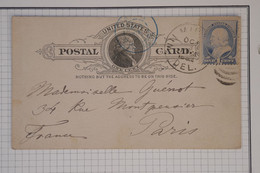 UNITED STATES
POSTAL CARD.
NOTHING BUT THE ADDRESS TO BE ON THIS SIDE.
OC
DEL.
Mademoiselle Guénot
34 Rue Montpensier
Paris
France